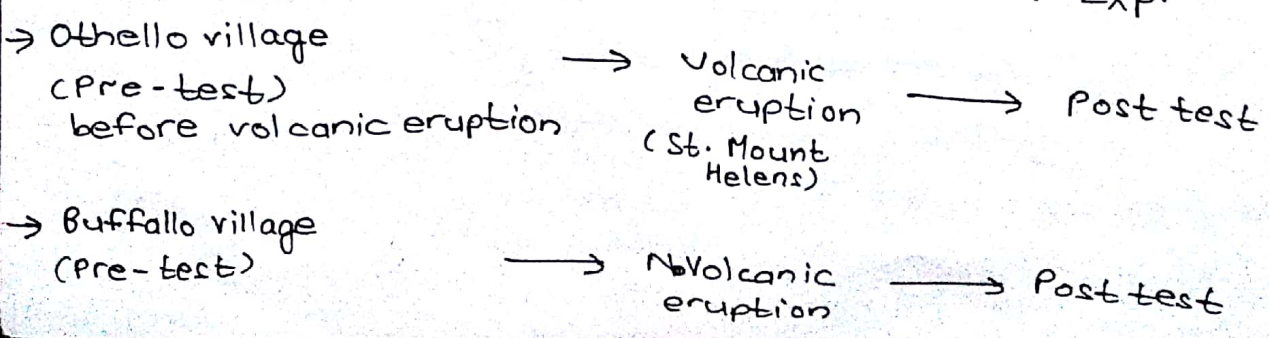 → Othello village
(Pre-test)
before volcanic eruption
→ Volcanic
eruption
(St. Mount
Helens)
→ Post test
→ Buffallo village
(Pre-test)
→ No Volcanic
eruption
→ Post test